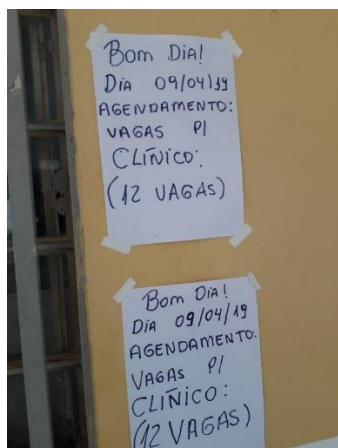 Bom Dia!
Dia 09/04/19
AGENDAMENTO:
VAGAS P/
CLÍNICO:
(12 VAGAS)
Bom Dia!
Dia 09/04/19
AGENDAMENTO:
VAGAS P/
CLÍNICO:
(12 VAGAS)